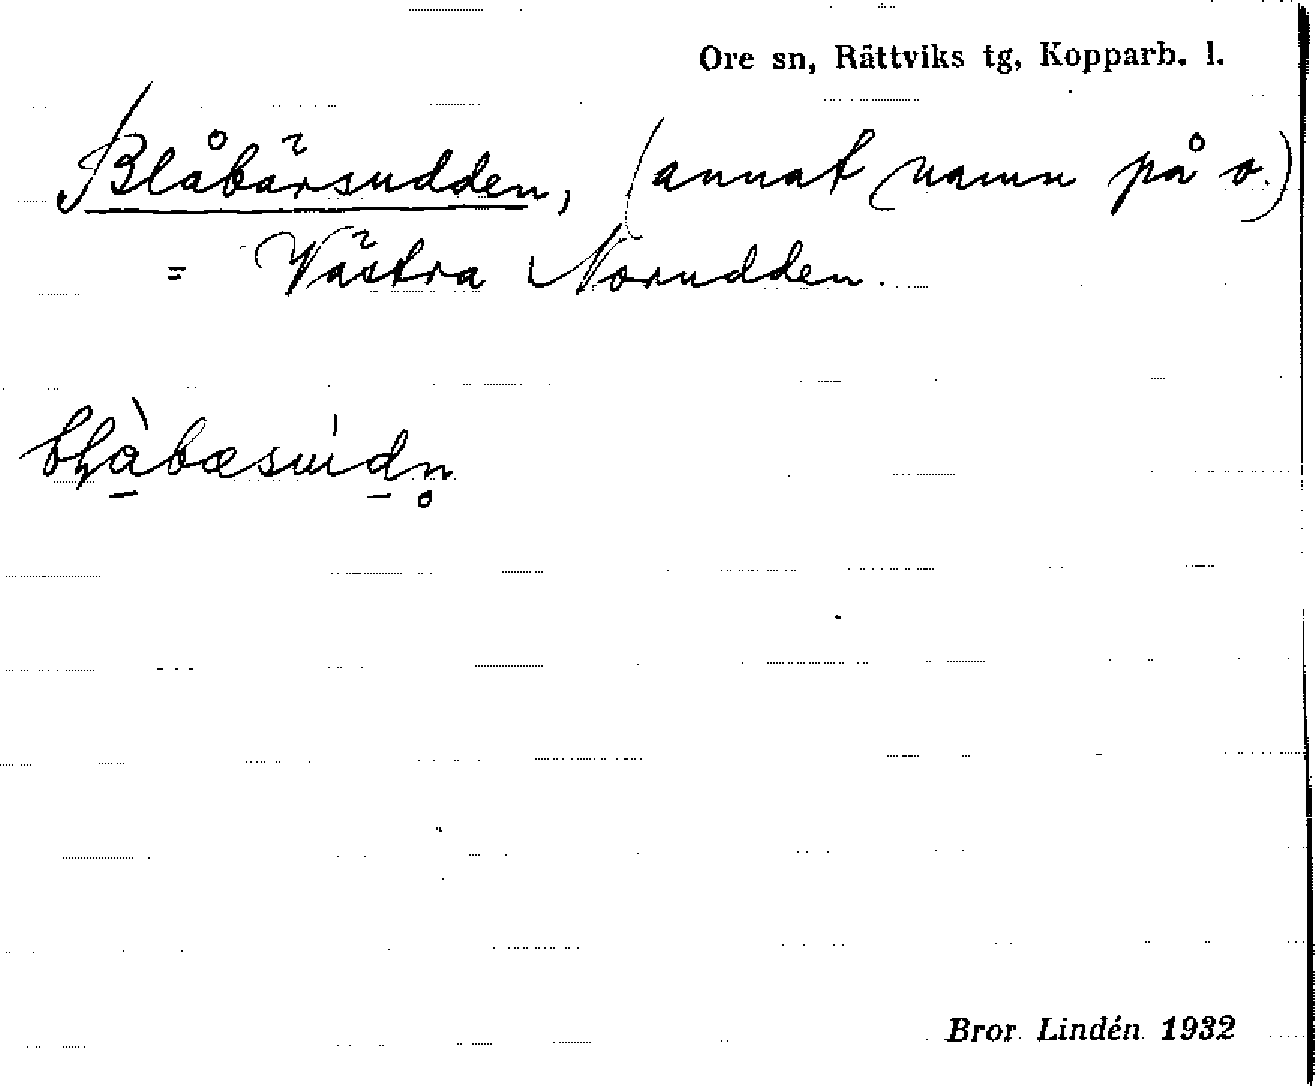 Ore sn, Rättviks tg, Kopparb. l.
Blåbärsudden, (annat namn på o.)
= Västra Norudden.
Bror Lindén 1932